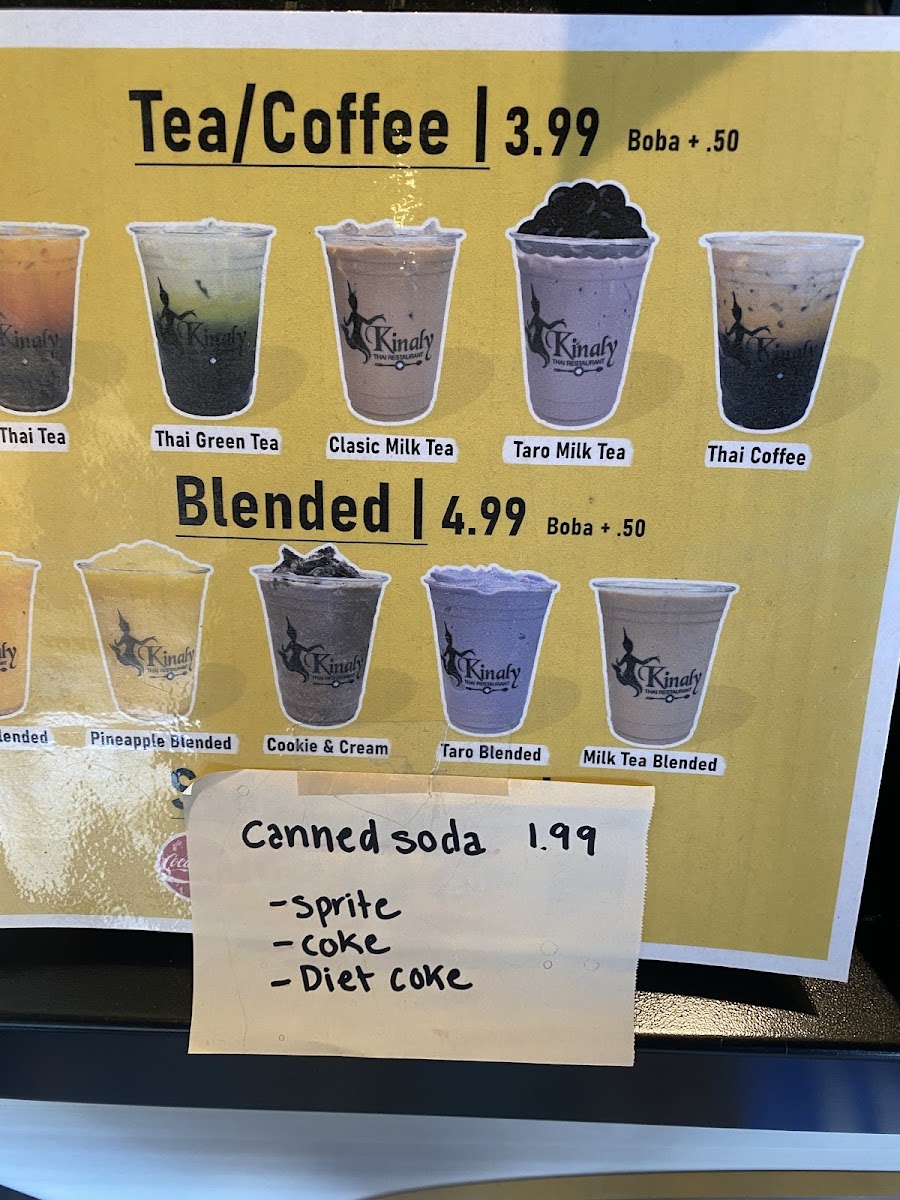 Tea/Coffee | 3.99 Boba + .50
Kinaly
Kinaly
Kinaly
THAI RESTAURANT
Kinaly
THAI RESTAURANT
Kinaly
Thai Tea
Thai Green Tea
Clasic Milk Tea
Taro Milk Tea
Thai Coffee
Blended | 4.99 Boba + .50
Kinaly
THAI RESTAURANT
Kinaly
THAI RESTAURANT
Kinaly
THAI RESTAURANT
Kinaly
THAI RESTAURANT
Pineapple Blended
Cookie & Cream
Taro Blended
Milk Tea Blended
Canned soda 1.99
- sprite
- coke
- Diet coke